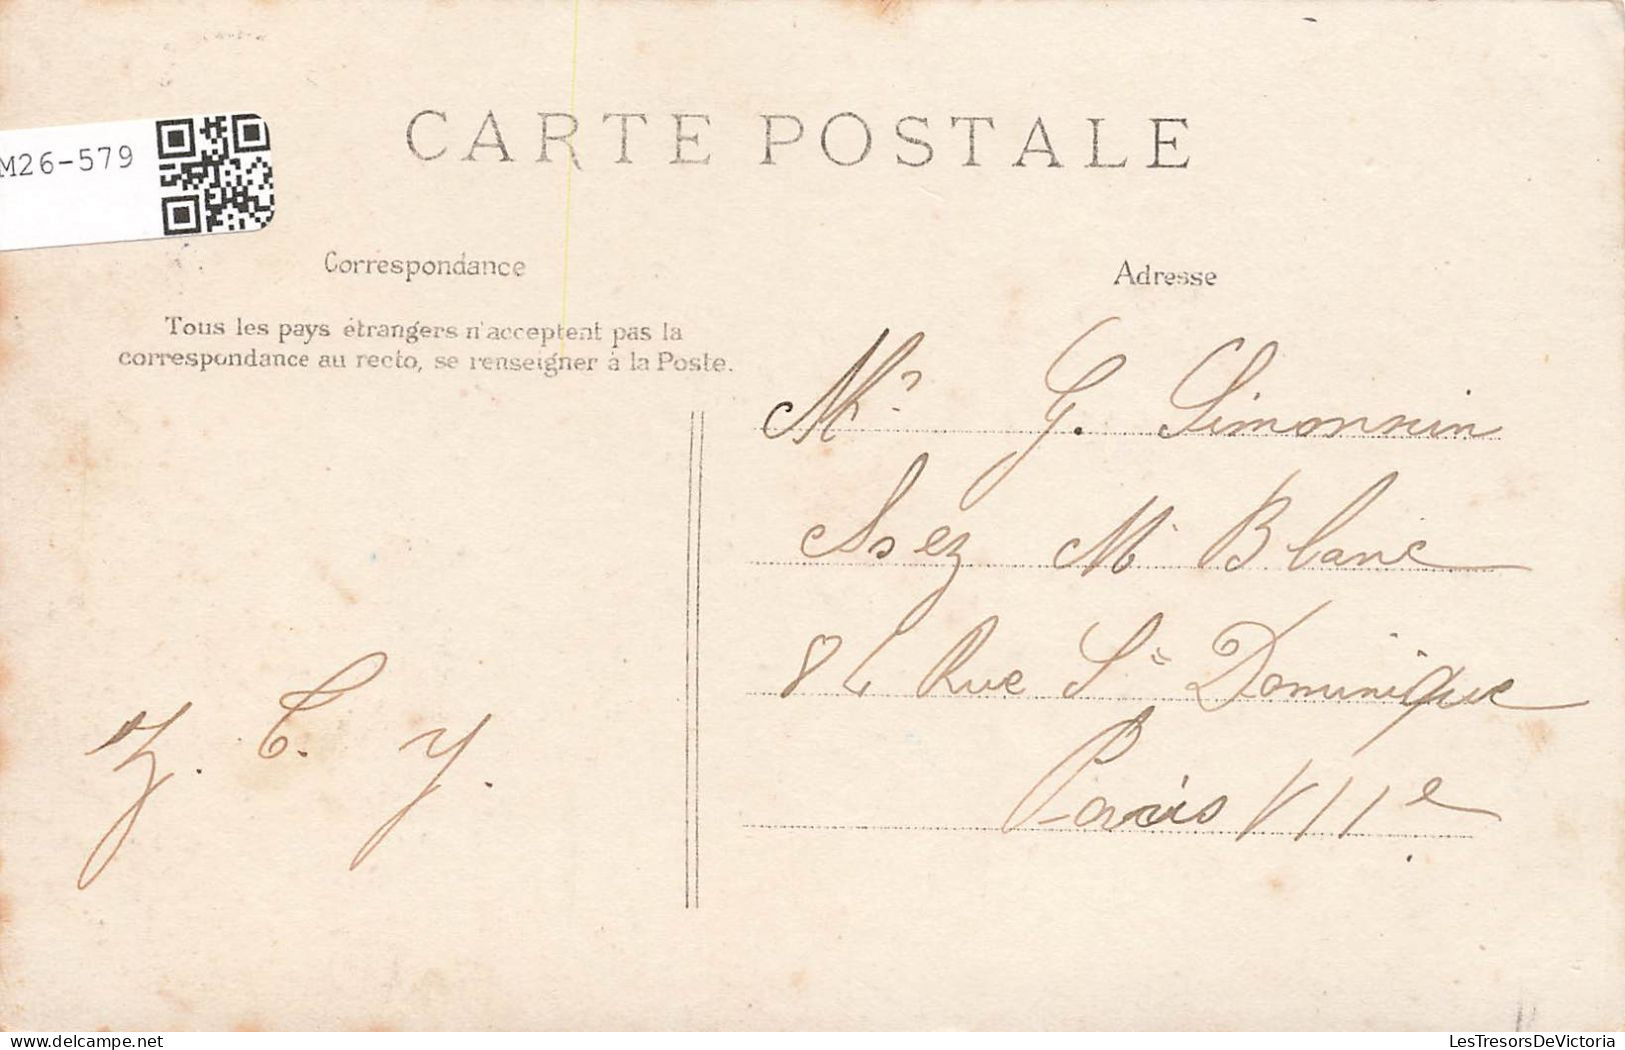 CARTE POSTALE
M26-579
Correspondance
Tous les pays étrangers n'acceptent pas la
correspondance au recto, se renseigner à la Poste.
Adresse
Mr G. Simonnin
chez Mr Blanc
84 Rue St Dominique
Paris VIIe
LesTresorsDeVictoria